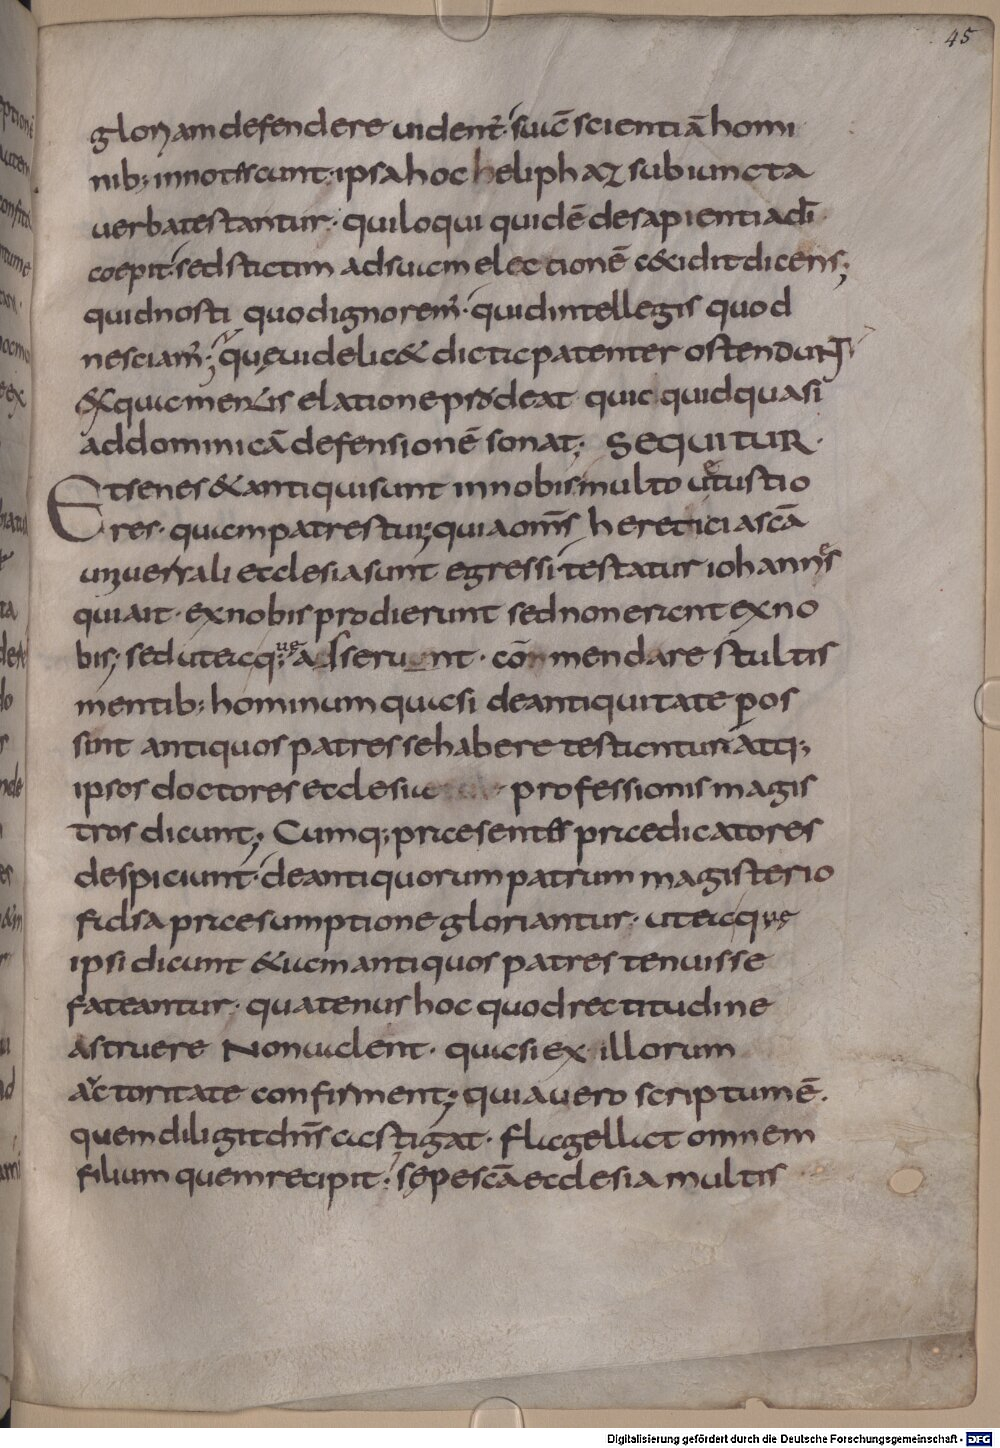 45
gloriam defendere uident̄· suā scientiā homi
nib; innotescunt· ipsa hoc heliphaz subiuncta
uerba testantur· qui loqui quidē de sapientia dī
coepit· sed statim ad suam elactionē excidit dicens;
quid nosti quod ignorem̄· quid intellegis quod
nesciam̄; quę uidelic& dicta patenter ostendunt q̄
ex qua mentis elatione prodeat quicquid quasi
ad dominicā defensionē sonat; SEQUITUR·
Et senes & antiqui sunt in nobis multo uetustio
res· quam patres tui; quia om̄s heretici a scā
uniuersali ecclesia sunt egressi· testatur iohannes
qui ait· ex nobis prodierunt sed non erant ex no
bis; sed ut ea q; adserunt· cōmmendare stultis
mentib; hominum quasi de antiquitate pos
sint antiquos patres se habere testantur· atq;
ipsos doctores ecclesiae professionis magis
tros dicunt; Cumq; praesentes praedicatores
despiciunt· de antiquorum patrum magisterio
falsa praesumptione gloriantur· ut ea quę
ipsi dicunt &iam antiquos patres tenuisse
fateantur· quatenus hoc quod rectitudine
astruere Non ualent· quasi ex illorum
auctoritate confirment; quia uero scriptum ē·
quem diligit dn̄s castigat· flagellat omnem
filium quem recipit· sępe scā ecclesia multis
Digitalisierung gefördert durch die Deutsche Forschungsgemeinschaft - DFG